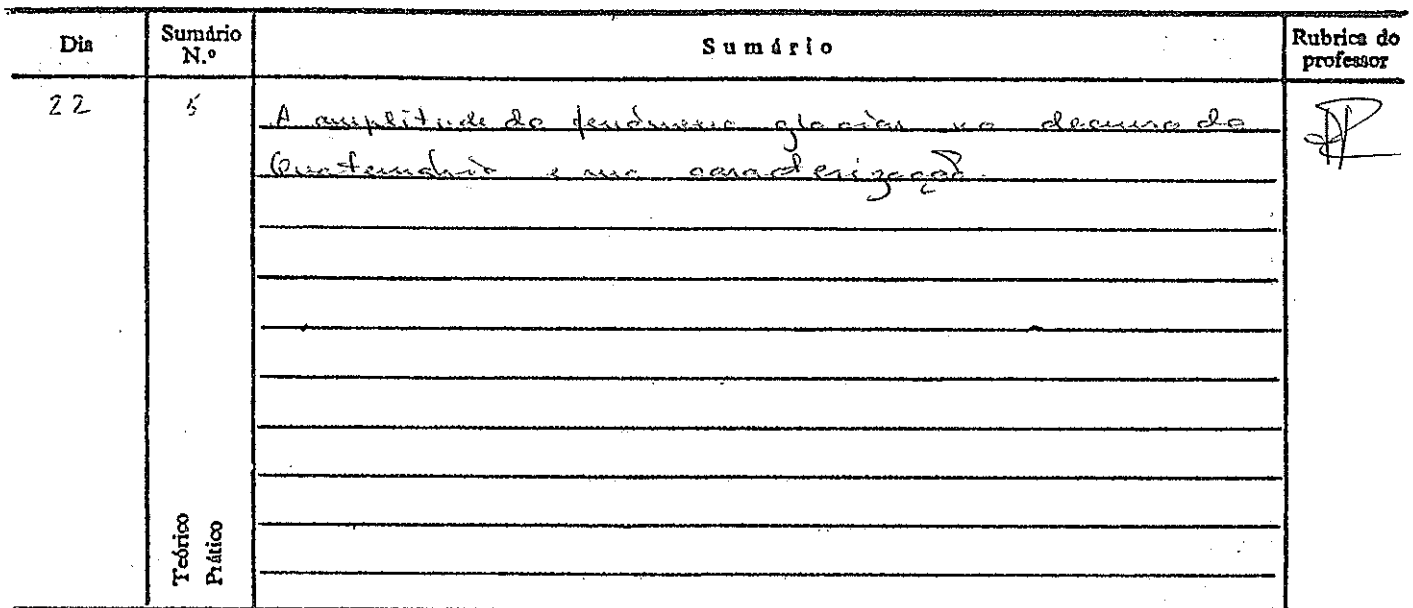 Dia
Sumário N.º
Sumário
Rubrica do professor
22
5
A amplitude do fenómeno glaciar no decurso do
Quaternário e sua caracterização.
Teórico
Prático